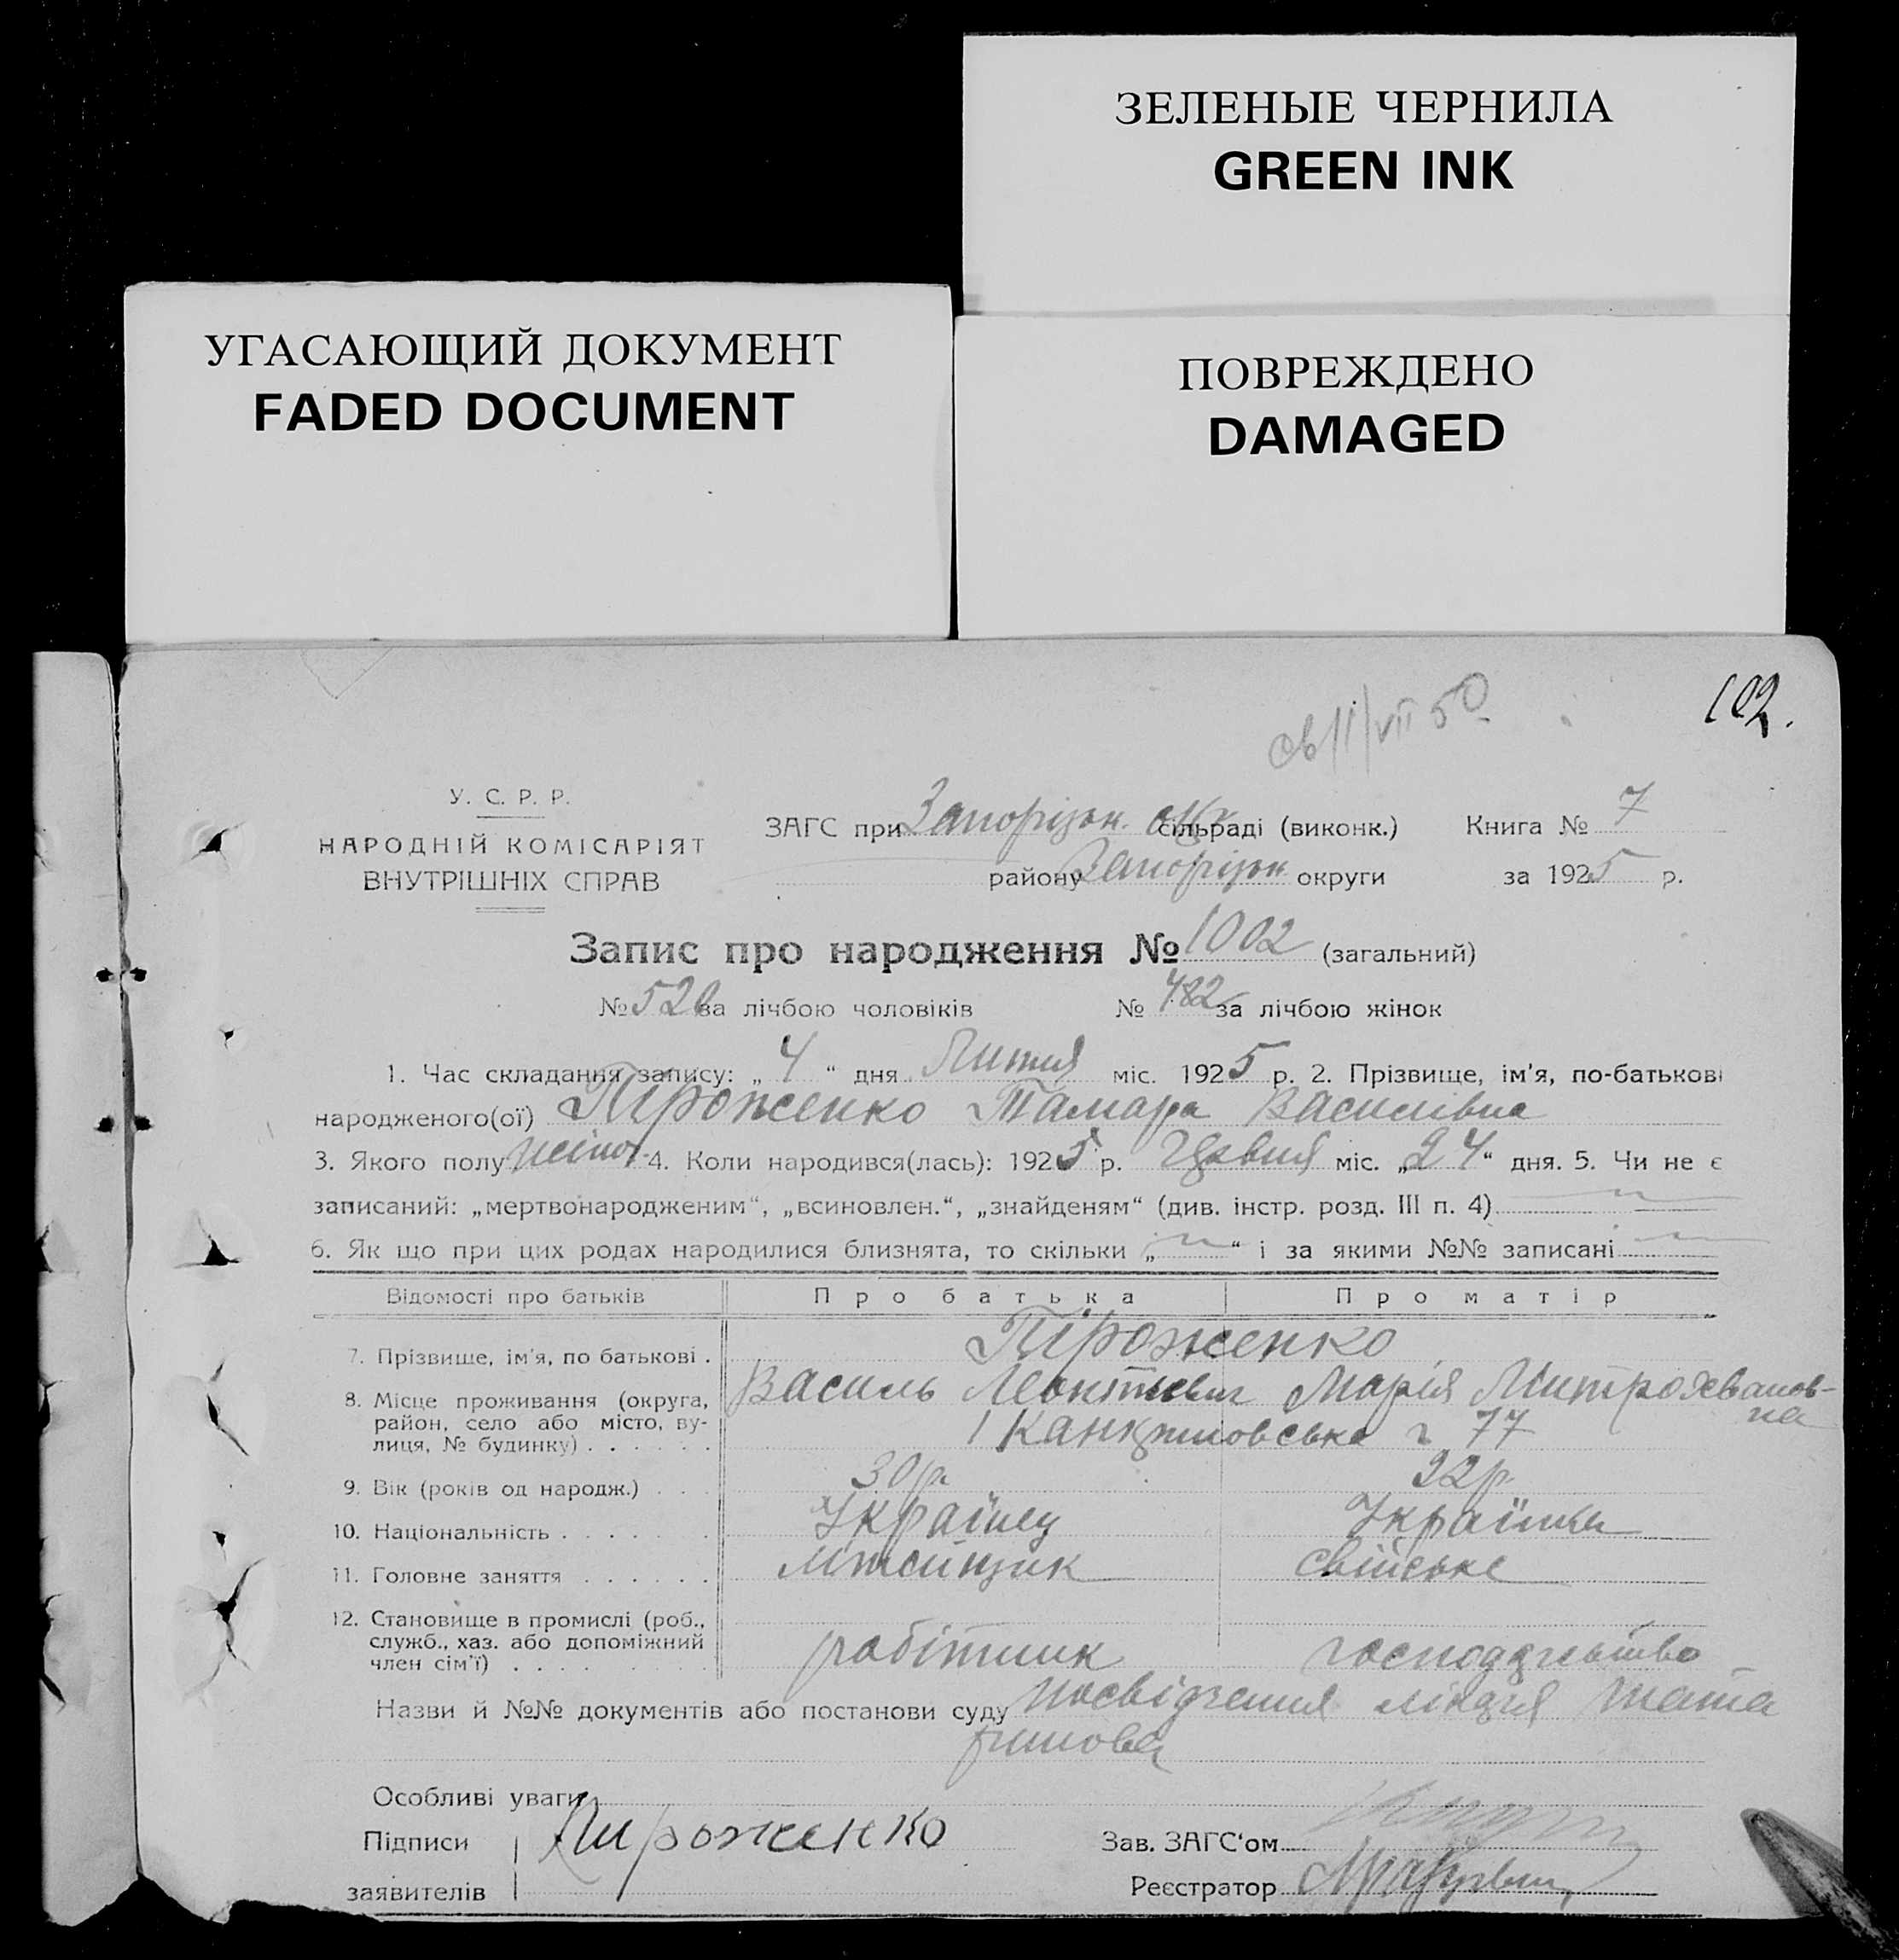 ЗЕЛЕНЫЕ ЧЕРНИЛА
GREEN INK
УГАСАЮЩИЙ ДОКУМЕНТ
FADED DOCUMENT
ПОВРЕЖДЕНО
DAMAGED
102.
св 11/VII 50
У. С. Р. Р.
НАРОДНІЙ КОМІСАРІЯТ
ВНУТРІШНІХ СПРАВ
ЗАГС при Запорізьк. сільраді (виконк.) Книга № 7
району Запорізьк округи за 1925 р.
Запис про народження № 1002 (загальний)
№ 520 за лічбою чоловіків № 482 за лічбою жінок
1. Час складання запису: „ 4 “ дня Липня міс. 1925 р. 2. Прізвище, ім'я, по-батькові
народженого(ої) Піроженко Тамара Василівна
3. Якого полу жіноч. 4. Коли народився(лась): 1925 р. Червня міс. „24“ дня. 5. Чи не є
записаний: „мертвонародженим“, „всиновлен.“, „знайденям“ (див. інстр. розд. III п. 4)
6. Як що при цих родах народилися близнята, то скільки „ “ і за якими №№ записані
Відомості про батьків Про батька Про матір
Піроженко
7. Прізвище, ім'я, по батькові .
Василь Леонтієвич Марія Митрофванов-
на
8. Місце проживання (округа,
район, село або місто, ву-
лиця, № будинку) . . . . . .
77
9. Вік (років од народж.) . . . 30 р. 22 р.
10. Національність . . . . . . Українец Українка
11. Головне заняття . . . . . . свійське
12. Становище в промислі (роб.,
служб., хаз. або допоміжний
член сім'ї) . . . . . . . . робітник господарство
Назви й №№ документів або постанови суду посвідчення лікаря
Особливі уваги
Підписи Пироженко Зав. ЗАГС'ом
заявителів Реєстратор